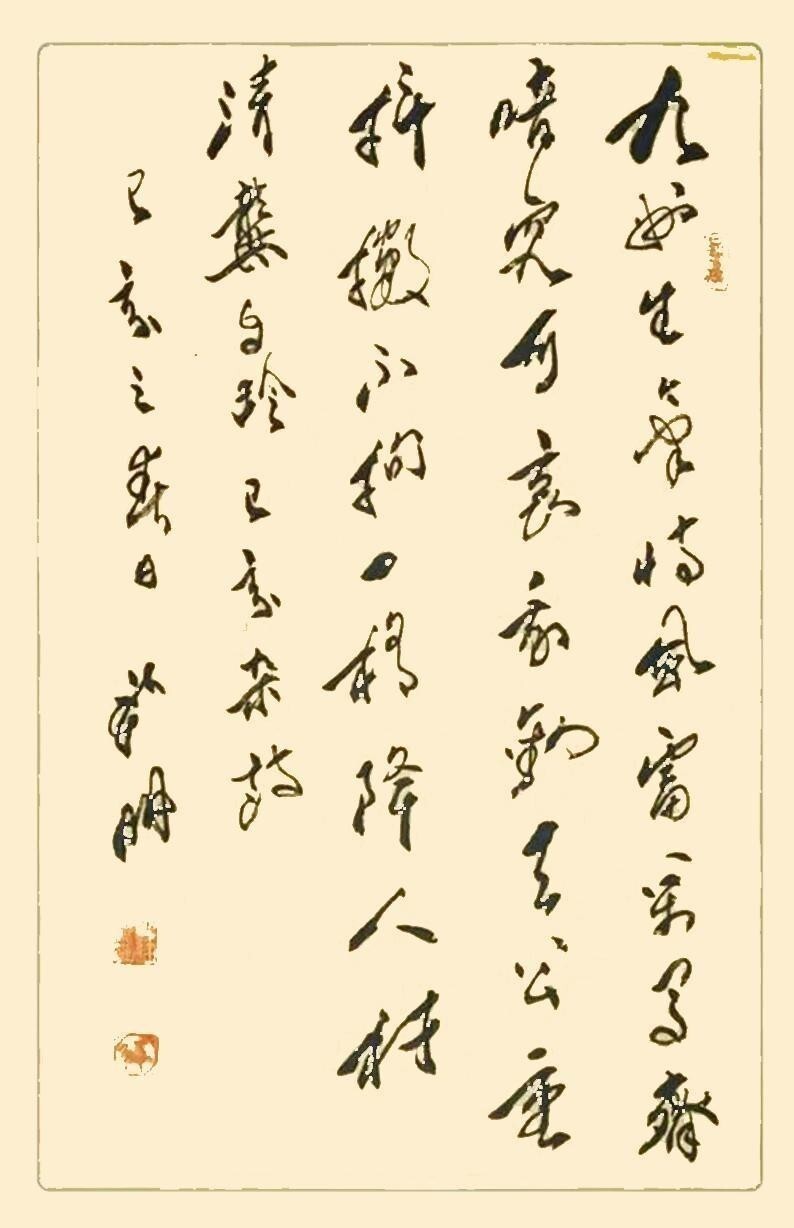 九州生氣恃風雷萬馬齊
喑究可哀我勸天公重
抖擻不拘一格降人材
清龔自珍 己亥杂詩
己亥之春日